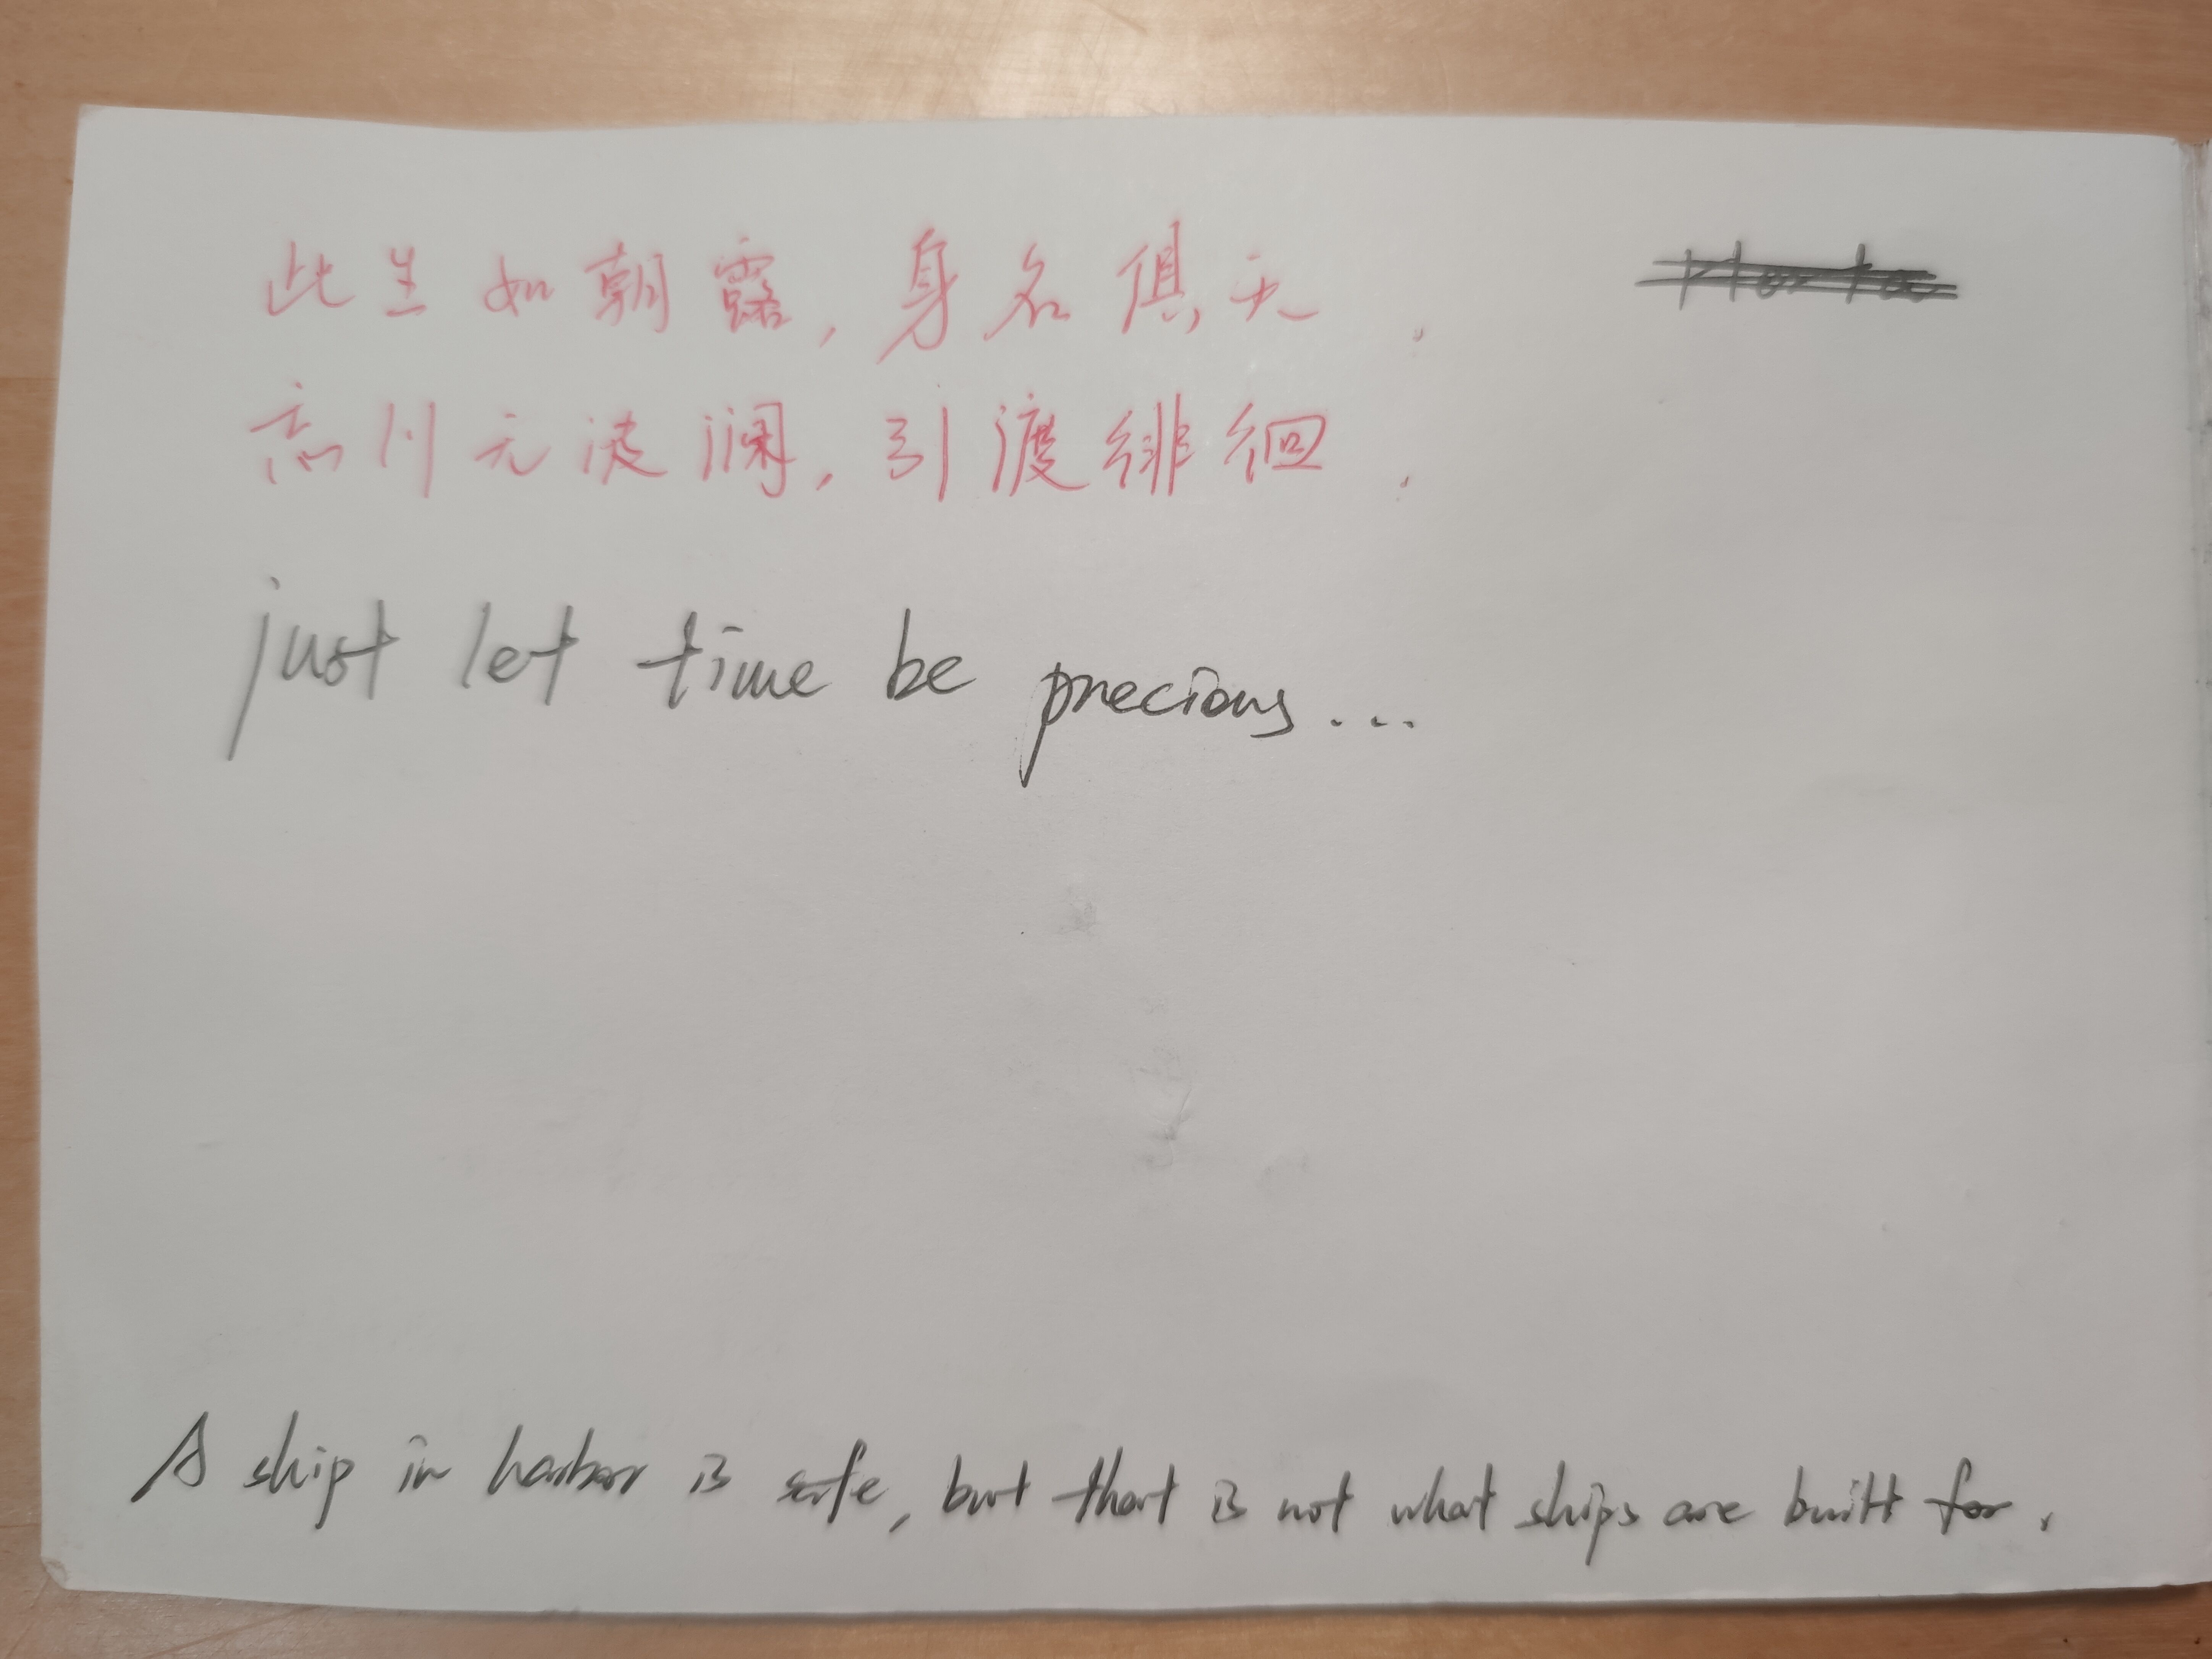 此生如朝露，身名俱无，
忘川无波澜，引渡徘徊，
just let time be precious...
A ship in harbor is safe, but that is not what ships are built for.